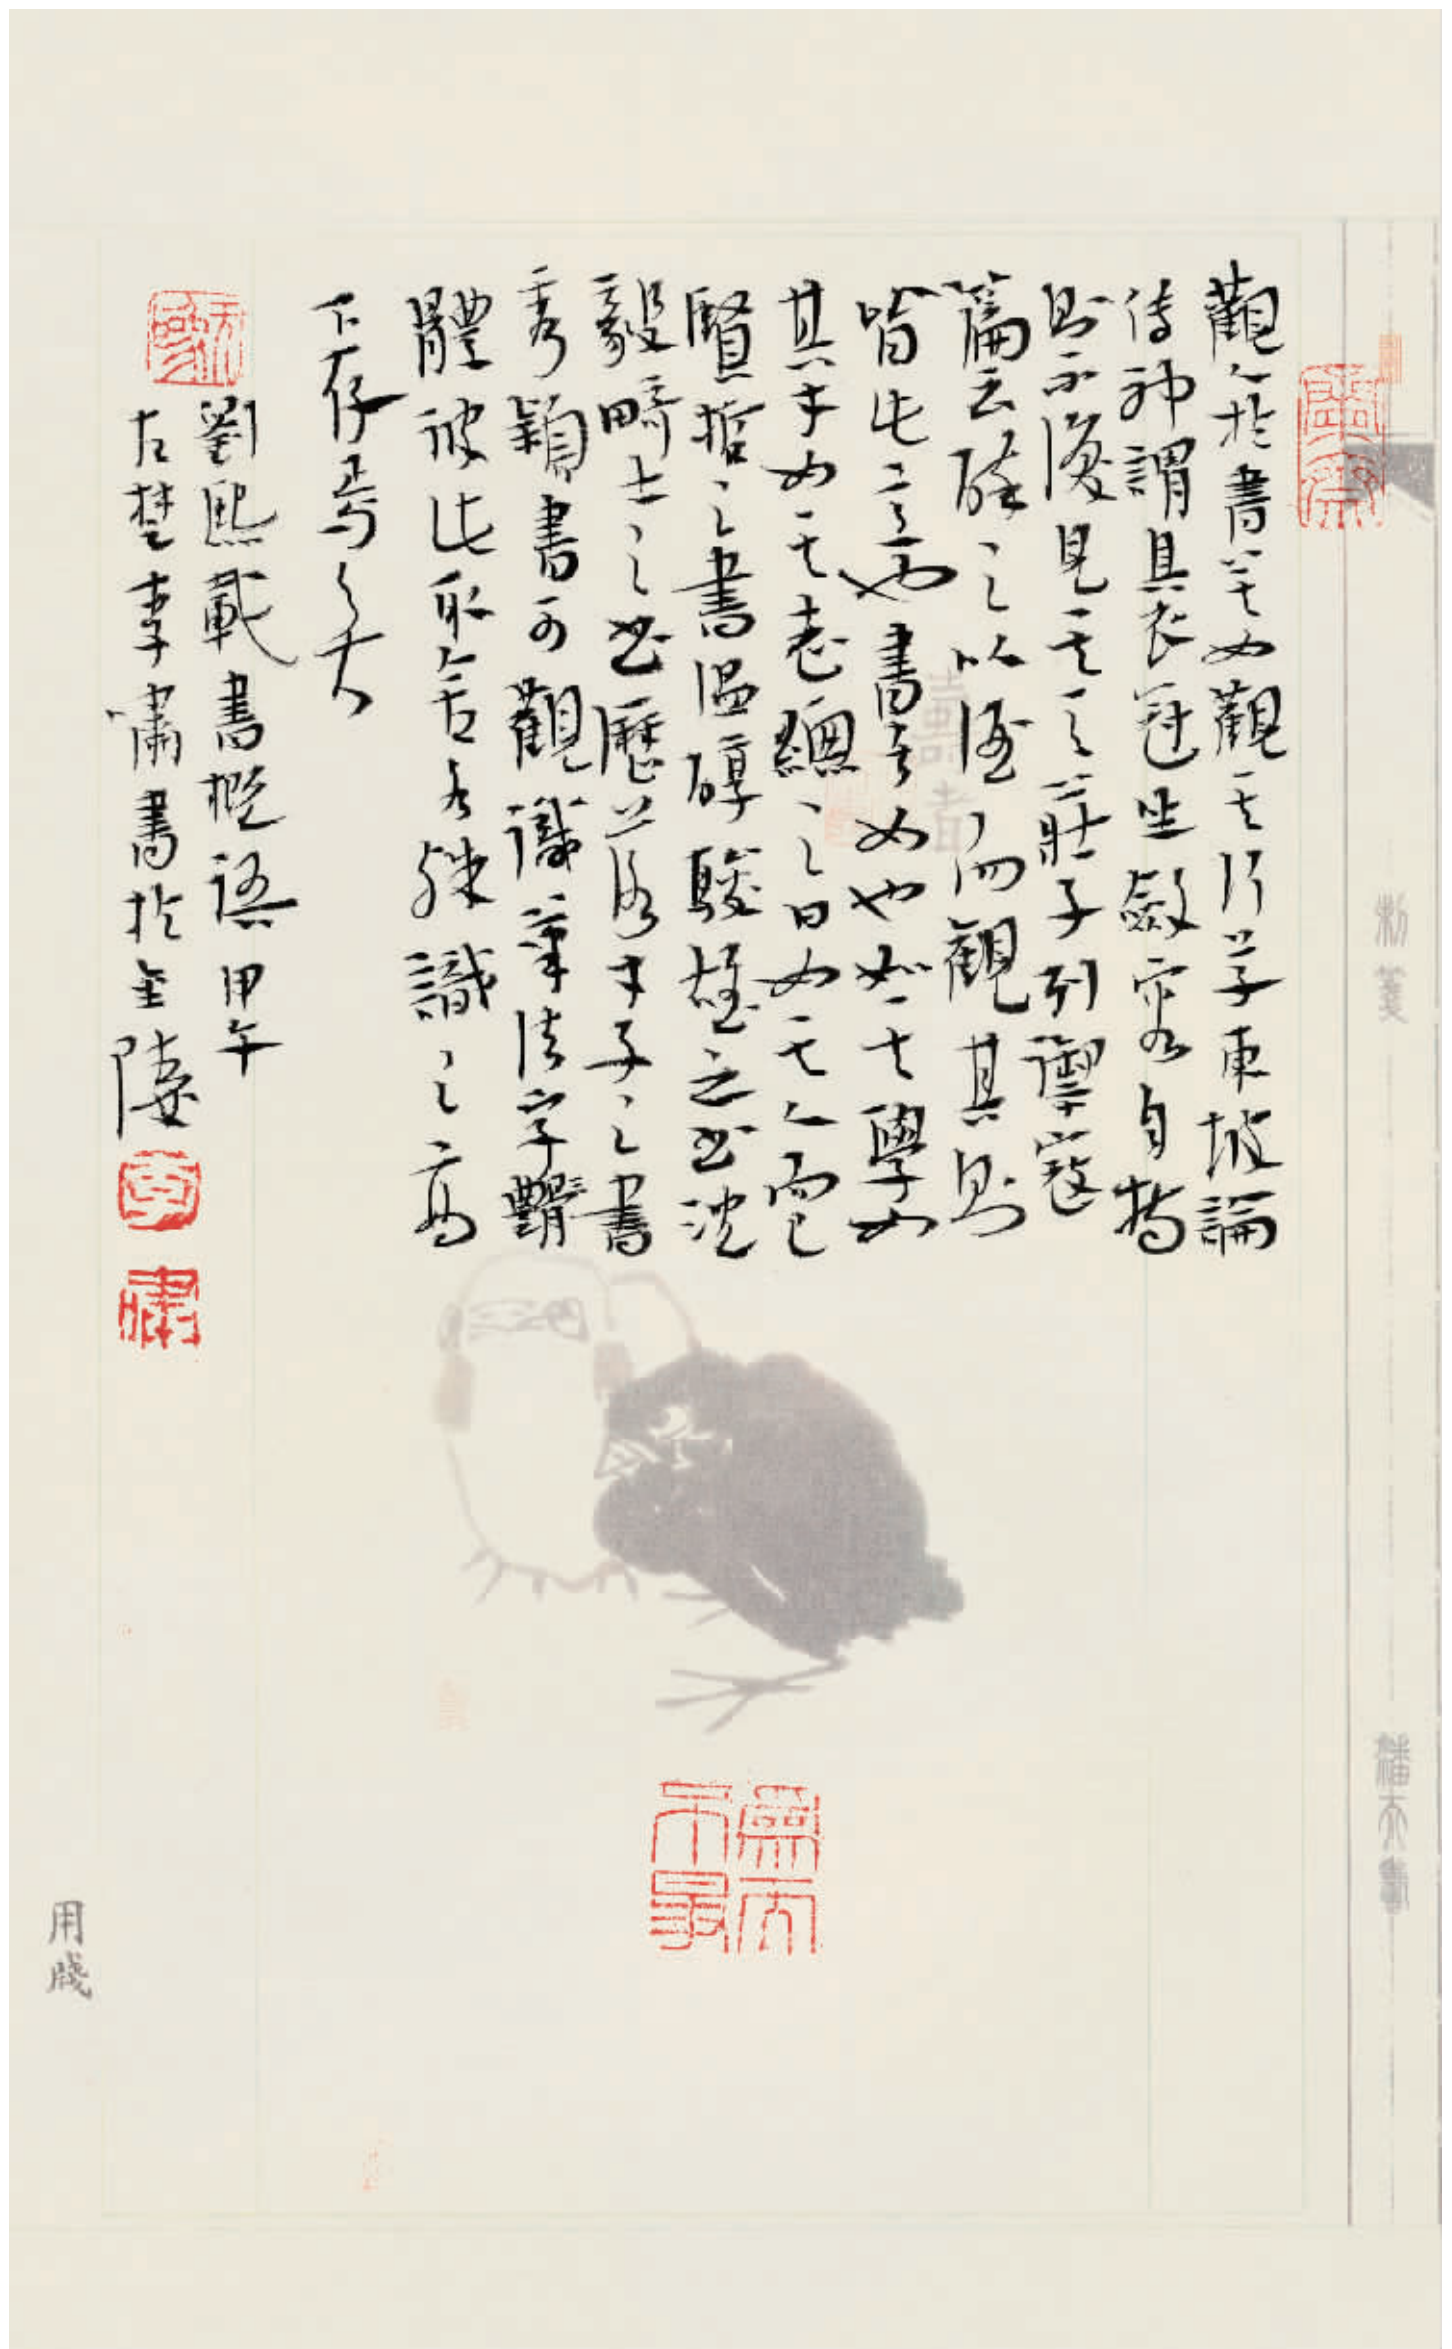 觀人於書莫如觀其行草東坡論
傳神謂具衣冠坐斂容自持
則不復見其天莊子列禦寇
篇云醉之以酒而觀其則
皆此意也書者如也如其學如
其才如其志總之曰如其人而已
賢哲之書溫醇駿雄之書沈
毅畸士之書歷落才子之書
秀穎書可觀識筆法字體
體彼此取舍各殊識之高
下存焉矣
劉熙載書概語甲午
古楚李嘯書於金陵
用箋